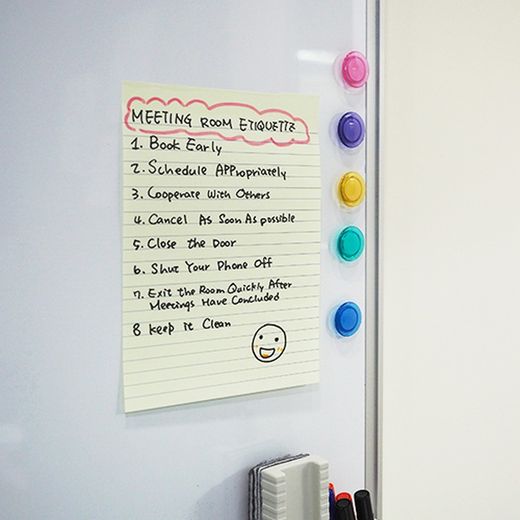 MEETING ROOM ETIQUETTE
1. Book Early
2. Schedule APPropriately
3. Cooperate With Others
4. Cancel As Soon As possible
5. Close the Door
6. Shut Your Phone Off
7. Exit the Room Quickly After
Meetings Have Concluded
8 keep it Clean